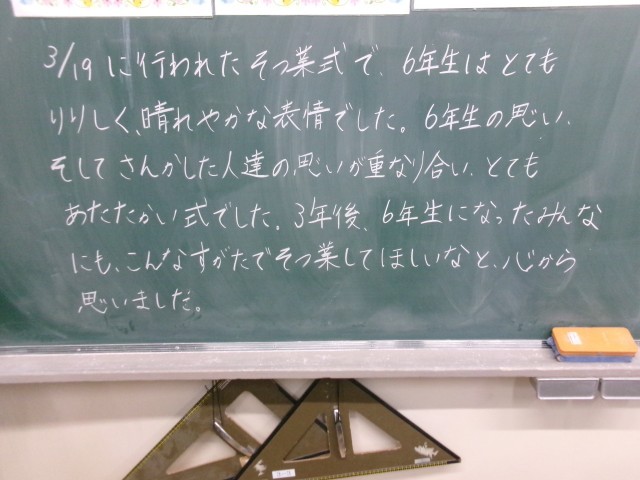 3/19 に行われたそつ業式で、6年生はとても
りりしく、晴れやかな表情でした。6年生の思い、
そしてさんかした人達の思いが重なり合い、とても
あたたかい式でした。3年後、6年生になったみんな
にも、こんなすがたでそつ業してほしいなと、心から
思いました。